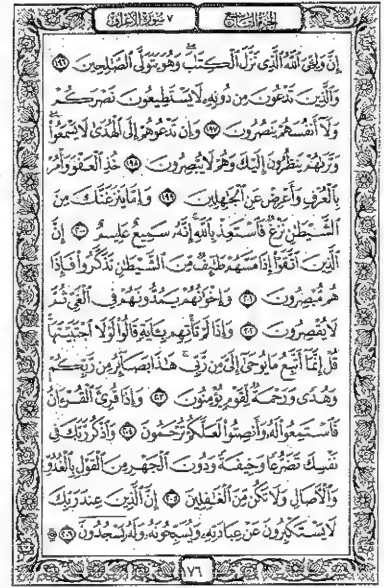 الجزء التاسع ٧ سورة الأعراف
إِنَّ وَلِـِّۧيَ ٱللَّهُ ٱلَّذِي نَزَّلَ ٱلۡكِتَٰبَۖ وَهُوَ يَتَوَلَّى ٱلصَّٰلِحِينَ ١٩٦
وَٱلَّذِينَ تَدۡعُونَ مِن دُونِهِۦ لَا يَسۡتَطِيعُونَ نَصۡرَكُمۡ
وَلَآ أَنفُسَهُمۡ يَنصُرُونَ ١٩٧ وَإِن تَدۡعُوهُمۡ إِلَى ٱلۡهُدَىٰ لَا يَسۡمَعُواْۖ
وَتَرَىٰهُمۡ يَنظُرُونَ إِلَيۡكَ وَهُمۡ لَا يُبۡصِرُونَ ١٩٨ خُذِ ٱلۡعَفۡوَ وَأۡمُرۡ
بِٱلۡعُرۡفِ وَأَعۡرِضۡ عَنِ ٱلۡجَٰهِلِينَ ١٩٩ وَإِمَّا يَنزَغَنَّكَ مِنَ
ٱلشَّيۡطَٰنِ نَزۡغٞ فَٱسۡتَعِذۡ بِٱللَّهِۚ إِنَّهُۥ سَمِيعٌ عَلِيمٌ ٢٠٠ إِنَّ
ٱلَّذِينَ ٱتَّقَوۡاْ إِذَا مَسَّهُمۡ طَٰٓئِفٞ مِّنَ ٱلشَّيۡطَٰنِ تَذَكَّرُواْ فَإِذَا
هُم مُّبۡصِرُونَ ٢٠١ وَإِخۡوَٰنُهُمۡ يَمُدُّونَهُمۡ فِي ٱلۡغَيِّ ثُمَّ
لَا يُقۡصِرُونَ ٢٠٢ وَإِذَا لَمۡ تَأۡتِهِم بِـَٔايَةٖ قَالُواْ لَوۡلَا ٱجۡتَبَيۡتَهَاۚ
قُلۡ إِنَّمَآ أَتَّبِعُ مَا يُوحَىٰٓ إِلَيَّ مِن رَّبِّيۚ هَٰذَا بَصَآئِرُ مِن رَّبِّكُمۡ
وَهُدٗى وَرَحۡمَةٞ لِّقَوۡمٖ يُؤۡمِنُونَ ٢٠٣ وَإِذَا قُرِئَ ٱلۡقُرۡءَانُ
فَٱسۡتَمِعُواْ لَهُۥ وَأَنصِتُواْ لَعَلَّكُمۡ تُرۡحَمُونَ ٢٠٤ وَٱذۡكُر رَّبَّكَ فِي
نَفۡسِكَ تَضَرُّعٗا وَخِيفَةٗ وَدُونَ ٱلۡجَهۡرِ مِنَ ٱلۡقَوۡلِ بِٱلۡغُدُوِّ
وَٱلۡأٓصَالِ وَلَا تَكُن مِّنَ ٱلۡغَٰفِلِينَ ٢٠٥ إِنَّ ٱلَّذِينَ عِندَ رَبِّكَ
لَا يَسۡتَكۡبِرُونَ عَنۡ عِبَادَتِهِۦ وَيُسَبِّحُونَهُۥ وَلَهُۥ يَسۡجُدُونَ ۩ ٢٠٦
١٧٦